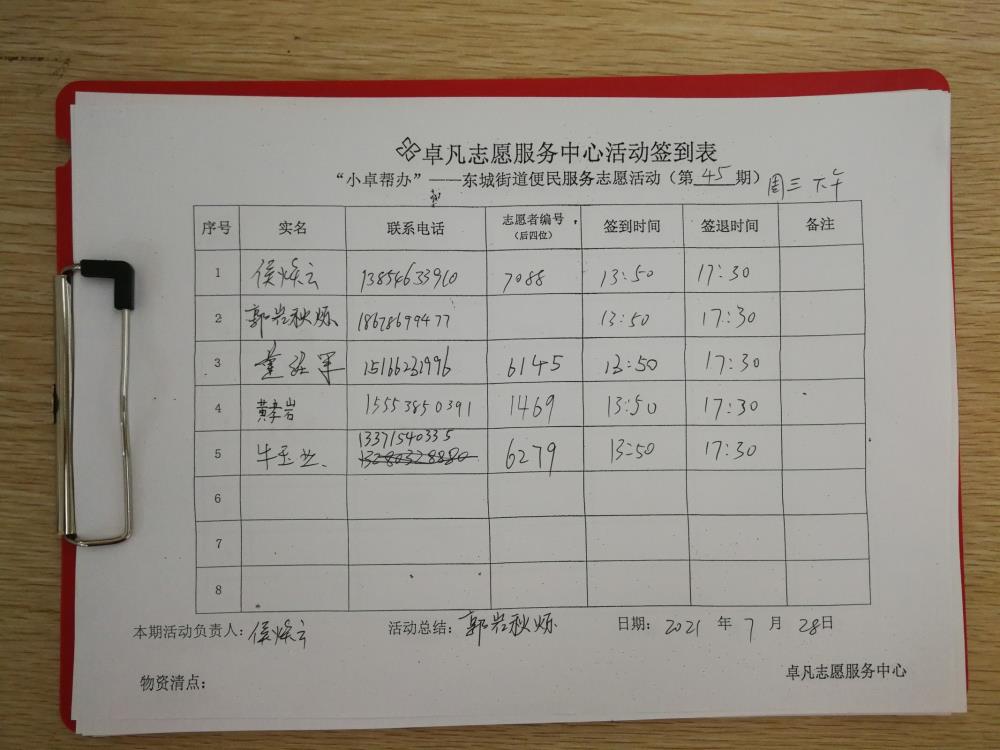 卓凡志愿服务中心活动签到表
“小卓帮办”——东城街道便民服务志愿活动（第 45 期） 周三 下午
序号 实名 联系电话 志愿者编号（后四位） 签到时间 签退时间 备注
1 侯焕云 13854633910 7088 13:50 17:30
2 郭岩秋烁 18678699477 13:50 17:30
3 15166231996 6145 13:50 17:30
4 黄孝岩 15553850391 1469 13:50 17:30
5 牛玉兰 13371540335 6279 13:50 17:30
6
7
8
本期活动负责人：侯焕云 活动总结：郭岩秋烁 日期：2021 年 7 月 28日
物资清点：
卓凡志愿服务中心